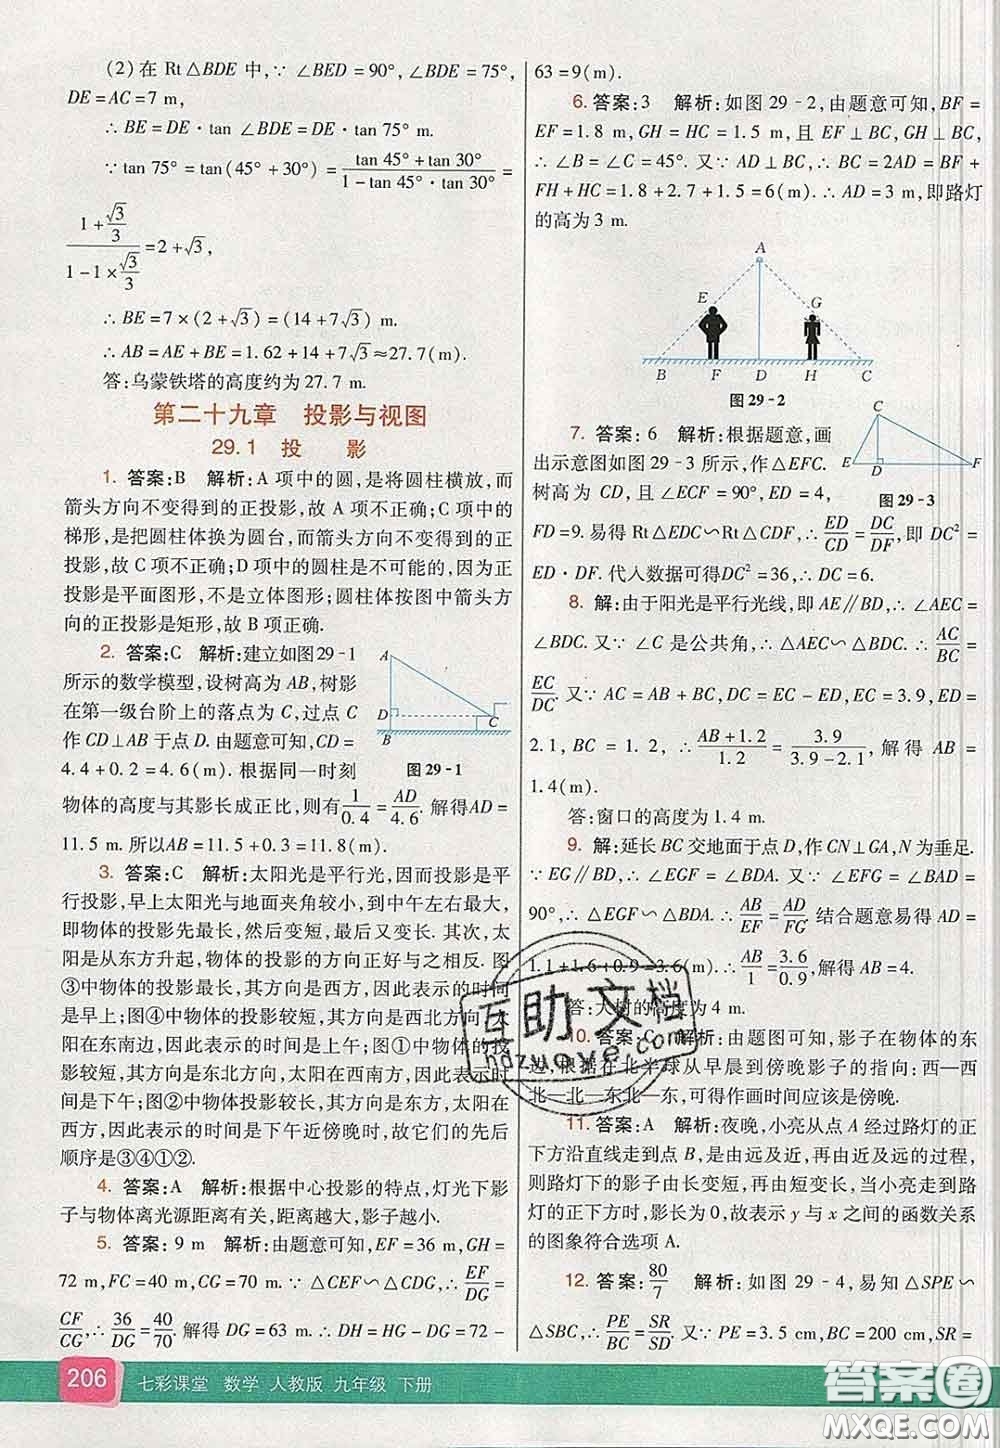 (2)在 Rt△BDE 中,∵ ∠BED=90°,∠BDE=75°,
DE=AC=7 m,
∴ BE=DE·tan ∠BDE=7tan 75° m.
∵tan 75°=tan(45°+30°)=(tan 45°+tan 30°)/(1-tan 45°·tan 30°)=
(1+√3/3)/(1-1×√3/3)=2+√3,
∴ BE=7×(2+√3)=(14+7√3) m.
∴ AB=AE+BE=1.62+14+7√3≈27.7(m).
答:乌蒙铁塔的高度约为 27.7 m.
第二十九章 投影与视图
29.1 投 影
1. 答案:B 解析:A 项中的圆,是将圆柱横放,而
箭头方向不变得到的正投影,故 A 项不正确;C 项中的
梯形,是把圆柱体换为圆台,而箭头方向不变得到的正
投影,故 C 项不正确;D 项中的圆柱是不正确的,因为正
投影是平面图形,不是立体图形;圆柱体按图中箭头方
向的正投影是矩形,故 B 项正确.
2. 答案:C 解析:建立如图29-1
所示的数学模型,设树高为 AB,树影
在第一级台阶上的落点为 C,过点 C
作 CD⊥AB 于点 D. 由题意可知,CD=
4.4+0.2=4.6(m). 根据同一时刻
物体的高度与其影长成正比,则有1/0.4=AD/4.6. 解得AD=
11.5 m. 所以AB=11.5+0.3=11.8(m).
A
D
B
C
图 29-1
3. 答案:C 解析:太阳光是平行光,因而投影是平
行投影,早上太阳光与地面夹角较小,到中午左右最大,
即物体的投影先最长,然后变短,最后变长. 其次,太
阳是从东方升起,物体的投影的方向正好与之相反. 图
③中物体的投影最长,其方向是正西,因此表示的时间
是早上;图④中物体的投影较短,其方向是西北方向,太
阳在东南边,因此表示的时间是上午;图①中物体的投
影较短,其方向是东北方向,太阳在西南方,因此表示的
时间是下午;图②中物体投影较长,其方向是东方,太阳在
西方,因此表示的时间是下午近傍晚,故它们的先后
顺序是③④①②.
4. 答案:A 解析:根据中心投影的特点,灯光下影
子与物体离光源距离有关,距离越大,影子越小.
5. 答案:9 m 解析:由题意可知,EF=36 m,GH=
72 m,FC=40 m,CG=70 m. ∵ △CEF∽△CDG,∴ EF/DG=
CF/CG,∴ 36/DG=40/70. 解得 DG=63 m. ∴ DH=HG-DG=72-
63=9(m).
6. 答案:3 解析:如图 29-2,由题意可知,BF=
EF=1.8 m,GH=HC=1.5 m,且 EF⊥BC,GH⊥BC,
∴ ∠B=∠C=45°. 又∵ AD⊥BC,∴ BC=2AD=BF+
FH+HC=1.8+2.7+1.5=6(m).∴ AD=3 m,即路灯
的高为 3 m.
A
E
G
B F D H C
图 29-2
7. 答案:6 解析:根据题意,画
出示意图如图 29-3 所示,作△EFC.
树高为 CD,且 ∠ECF=90°,ED=4,
FD=9. 易得 Rt△EDC∽Rt△CDF,∴ ED/CD=DC/DF,即 DC²=
ED·DF. 代人数据可得DC²=36,∴ DC=6.
C
E
D
F
图 29-3
8. 解:由于阳光是平行光线,即 AE∥BD,∴ ∠AEC=
∠BDC. 又∵ ∠C 是公共角,∴ △AEC∽△BDC. ∴ AC/BC=
EC/DC. 又∵ AC=AB+BC,DC=EC-ED,EC=3.9,ED=
2.1,BC=1.2, ∴ (AB+1.2)/1.2=3.9/(3.9-2.1),解得 AB=
1.4(m).
答:窗口的高度为 1.4 m.
9. 解:延长 BC 交地面于点 D,作 CN⊥GA,N 为垂足.
∵ EG∥BD,∴ ∠EGF=∠BDA. 又∵ ∠EFG=∠BAD=
90°,∴ △EGF∽△BDA. ∴ AB/EF=AD/FG. 结合题意易得 AD=
1.1+1.6+0.9=3.6(m). ∴ AB/1=3.6/0.9,解得 AB=4.
答:大树的高度为 4 m.
10. 答案:C 解析:由题图可知,影子在物体的东
边,根据在北半球从早晨到傍晚影子的指向:西—西
北—北—东北—东,可得作画时间应该是傍晚.
11. 答案:A 解析:夜晚,小亮从点 A 经过路灯的正
下方沿直线走到点 B,是由远及近,再由近及远的过程,
则路灯下的影子由长变短,再由短变长,当小亮走到路
灯的正下方时,影长为 0,故表示 y 与 x 之间的函数关系
的图象符合选项 A.
12. 答案:80/7 解析:如图 29-4,易知 △SPE∽
△SBC,∴ PE/BC=SR/SD. 又∵ PE=3.5 cm,BC=200 cm,SR=
206
七彩课堂 数学 人教版 九年级 下册
互助文档
hdzuoye.com
答案圈
MXQE.COM